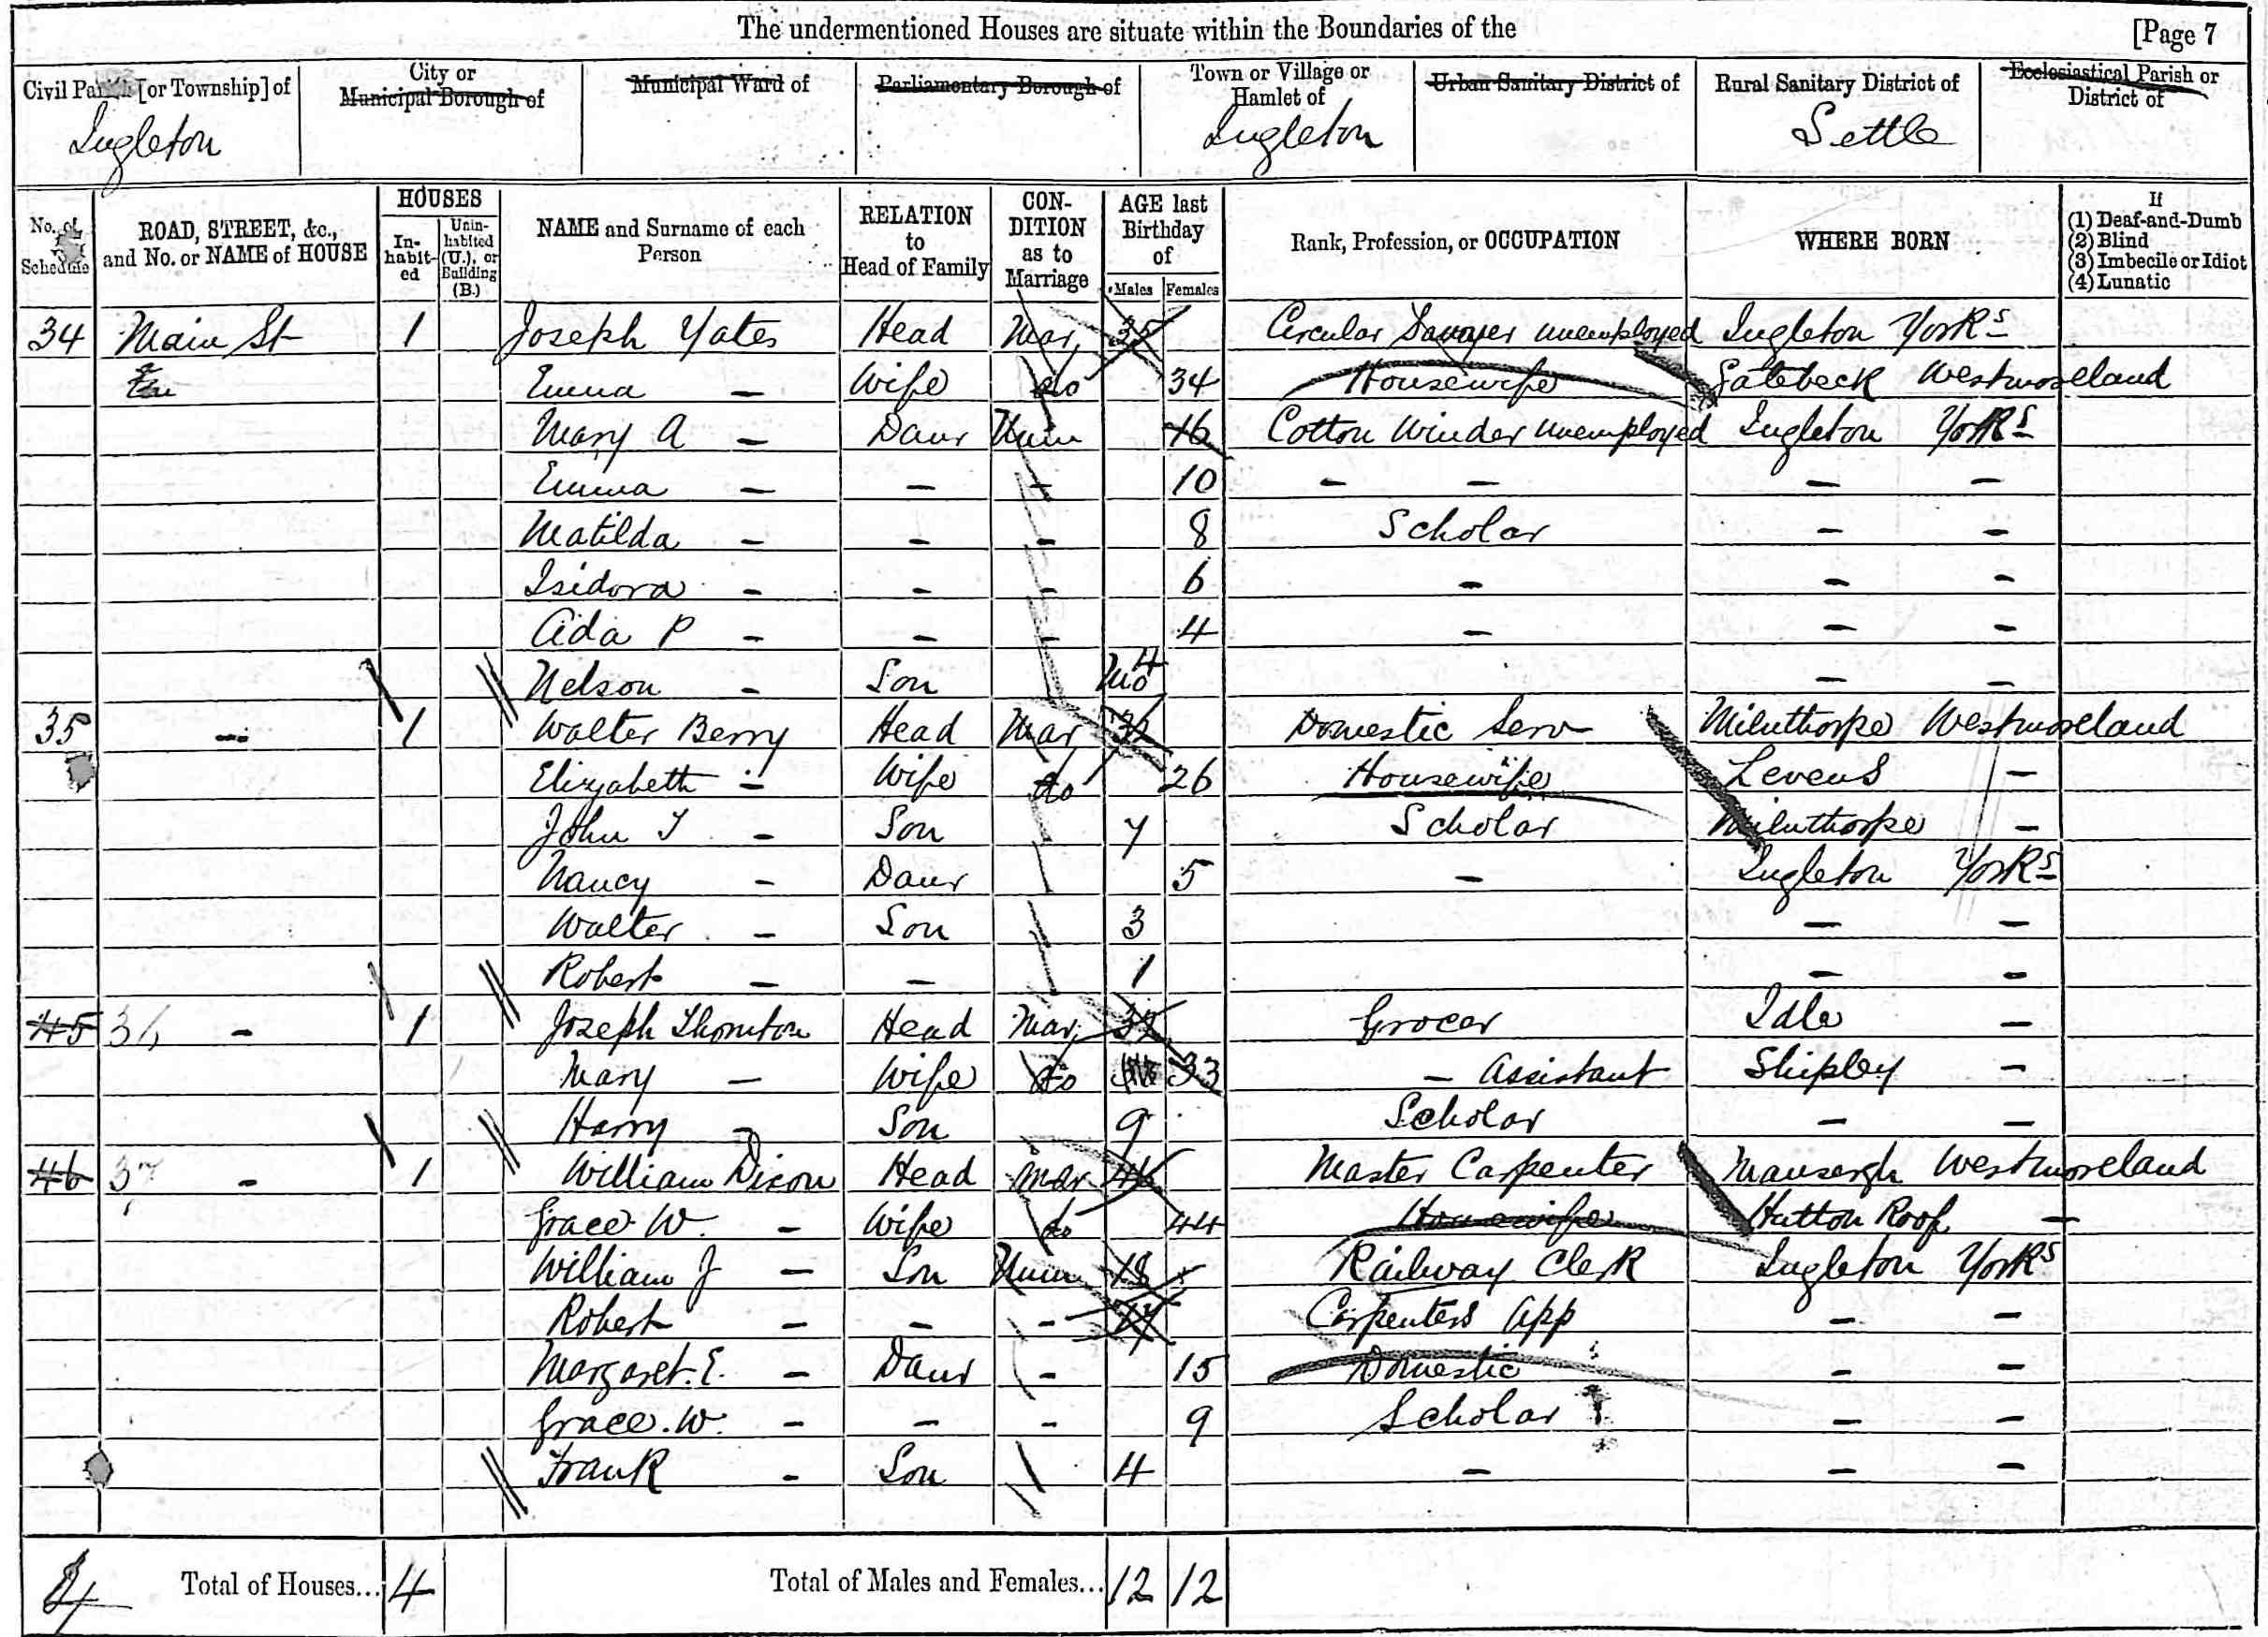 The undermentioned Houses are situate within the Boundaries of the [Page 7
Civil Parish [or Township] of
Ingleton
City or Municipal Borough of
Municipal Ward of
Parliamentary Borough of
Town or Village or Hamlet of
Ingleton
Urban Sanitary District of
Rural Sanitary District of
Settle
Ecclesiastical Parish or District of
No. of Schedule
ROAD, STREET, &c., and No. or NAME of HOUSE
HOUSES
In-habit-ed
Unin-habited (U.), or Building (B.)
NAME and Surname of each Person
RELATION to Head of Family
CON-DITION as to Marriage
AGE last Birthday of
Males Females
Rank, Profession, or OCCUPATION
WHERE BORN
If
(1) Deaf-and-Dumb
(2) Blind
(3) Imbecile or Idiot
(4) Lunatic
34 Main St 1 Joseph Yates Head Mar 35 Circular Sawyer unemployed Ingleton Yorks
Emma — Wife do 34 Housewife Gatebeck Westmoreland
Mary A — Daur Unm 16 Cotton Winder unemployed Ingleton Yorks
Emma — — — 10 — — — —
Matilda — — — 8 Scholar — —
Isidora — — — 6 — — —
Ada P — — — 4 — — —
Nelson — Son 4 Mo — —
35 — 1 Walter Berry Head Mar Domestic Serv Milnthorpe Westmoreland
Elizabeth — Wife do 26 Housewife Levens —
John T — Son — 7 Scholar Milnthorpe —
Nancy — Daur 5 — Ingleton Yorks
Walter — Son 3 — —
Robert — — 1 — —
45 36 — 1 Joseph Thornton Head Mar Grocer Idle —
Mary — Wife do 33 — Assistant Shipley —
Harry — Son 9 Scholar — —
46 37 — 1 William Dixon Head Mar 46 Master Carpenter Mansergh Westmoreland
Grace W. — Wife do 44 Housewife Hutton Roof —
William J — Son Unm 18 Railway Clerk Ingleton Yorks
Robert — — — 17 Carpenters App — —
Margaret. E. — Daur — 15 Domestic — —
Grace. W. — — — 9 Scholar — —
Frank — Son 4 — — —
Total of Houses... 4 Total of Males and Females... 12 12